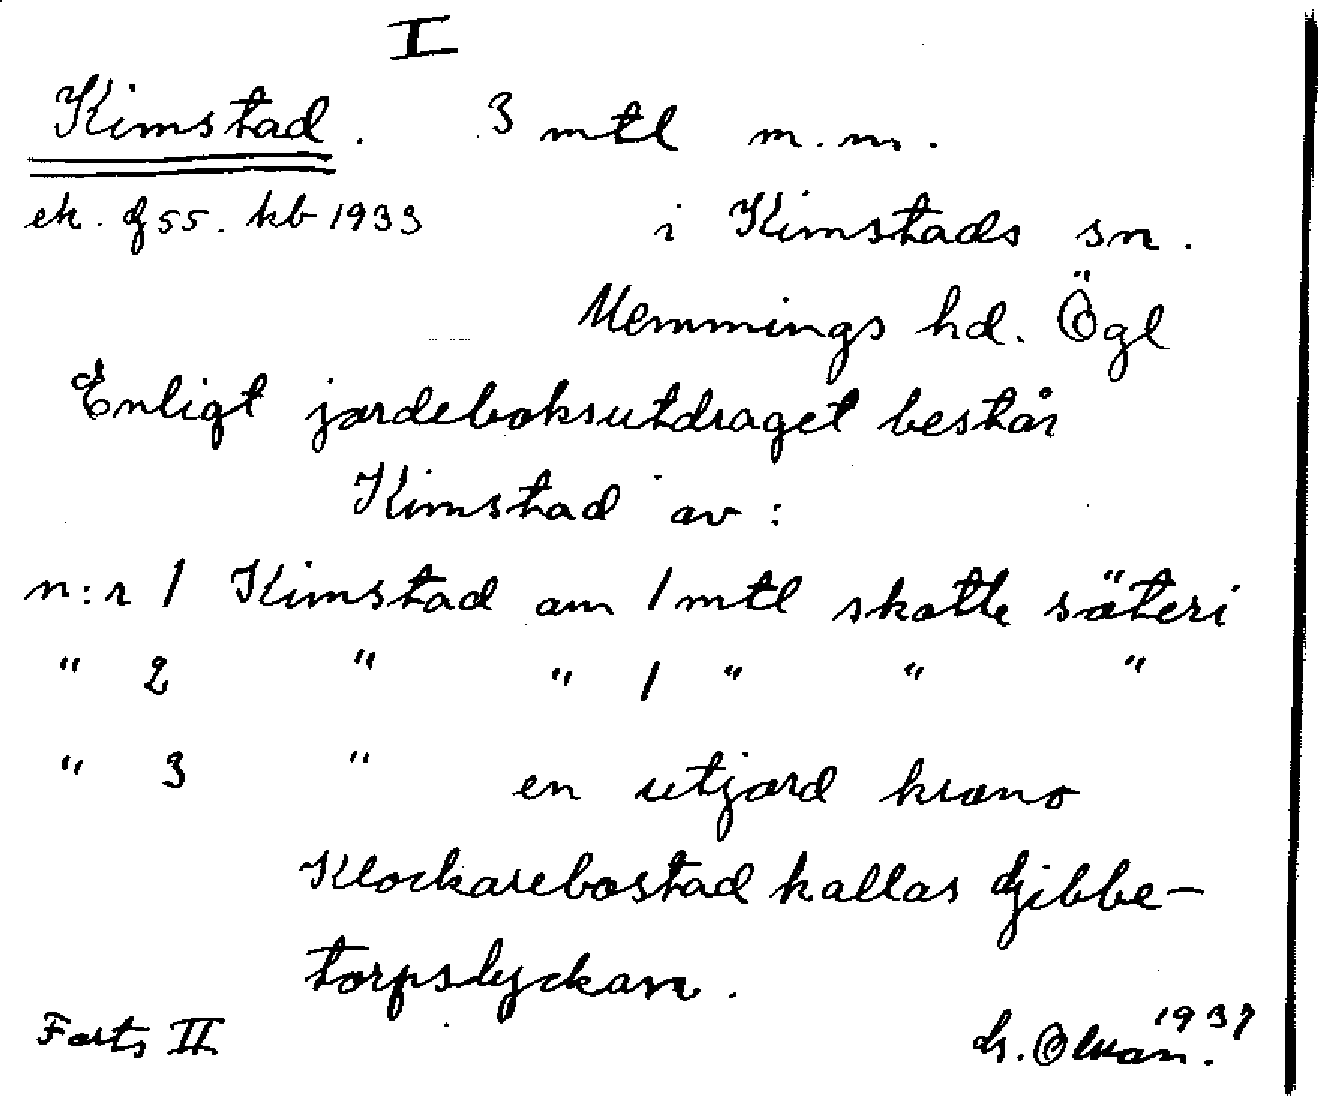 I
Kimstad. 3 mtl m.m.
ek. g 55. kb 1933 i Kimstads sn.
Memmings hd. Ögl
Enligt jordeboksutdraget består
Kimstad av:
n:r 1 Kimstad om 1 mtl skatte säteri
" 2 " " 1 " " "
" 3 " en utjord krono
Klockarebostad kallas Gibbe-
torpslyckan.
Forts II 1937